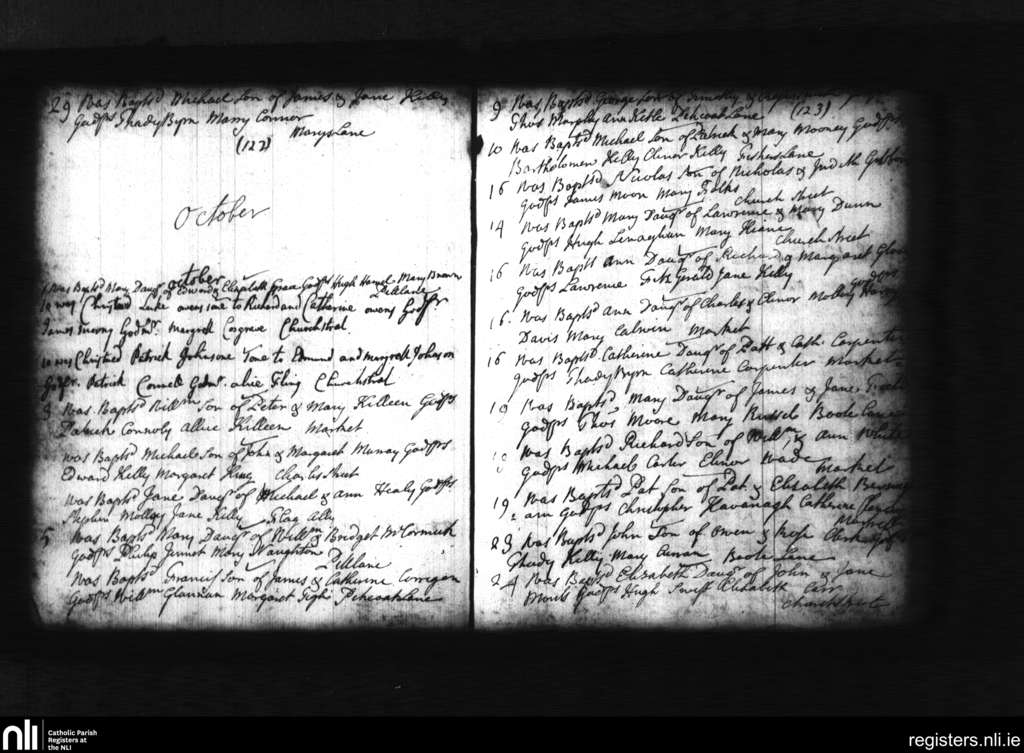 29 Was Baptsd Michael Son of James & Jane Kelly
Godfrs Thady Byrn Marry Connor
Marys Lane
(122)
October
October
Was Baptsd Mary Daugr of Edward & Elizabeth Godfrs Hugh Mary Brown
Pill lane
10 was Christned Luke owens sone to Richard and Catherine owens Godfr
James Godmr. Margrett Cosgrave Churchstret
10 was Christned Patrick Johnsone Sone to Edmund and margrett Johnson
Godfr. Patrick Connell Godmr. alice Churchstret
3 Was Baptsd Willm Son of Peter & Mary Killeen Godfrs
Patrick Connoly Allice Killeen Market
Was Baptsd Michael Son of John & Margaret Murray Godfrs
Edward Kelly Margaret King Charles Street
Was Baptsd Jane Daugr of Michael & ann Healy Godfrs
Stephen Molloy Jane Kelly Flag Alley
5 Was Baptsd Mary Daugr of Willm & Bridget McCormick
Godfrs Philip Mary Naughton
Pill lane
Was Baptsd Francis Son of James & Catherine Corrigan
Godfrs Willm Glannan Margaret Pehcoak Lane
9 Was Baptsd George Son of
Thos Murphy Ann Pehcoak Lane (123)
10 Was Baptsd Michael Son of Patrick & Mary Mooney Godfrs
Bartholomew Kelly Elinor Kelly Fishers Lane
16 Was Baptsd Nicolas Son of Nicholas & Judith
Godfrs James Moon Mary Church Street
14 Was Baptsd Mary Daugr of Lawrence & Mary Dunn
Godfrs Hugh Lenaghan Mary Church Street
16 Was Baptsd Ann Daugr of Richard & Margaret
Godfrs Lawrence Fitz Gerald Jane Kelly
16 Was Baptsd Ann Daugr of Charles & Elinor Molloy Godfrs
Davis Mary Market
16 Was Baptsd Catherine Daugr of Patt & Cath. Carpenter
Godfrs Thady Byrn Catherine Carpenter Market
Was Baptsd Mary Daugr of James & Jane
Godfrs Thos Moore Mary Russel Boote Lane
Was Baptsd Richard Son of Willm & Ann White
Godfrs Michael Carter Elinor Wade Market
19 Was Baptsd Pat Son of Pat & Elizabeth
Godfrs Christopher Kavanagh Catherine
23 Was Baptsd John Son of Owen & Rose
Thady Kelly Mary Curran Boote Lane
24 Was Baptsd Elizabeth Daugr of John & Jane
Godfrs Hugh Swift Elizabeth Carr
Church Street
nli
Catholic Parish
Registers at
the NLI
registers.nli.ie